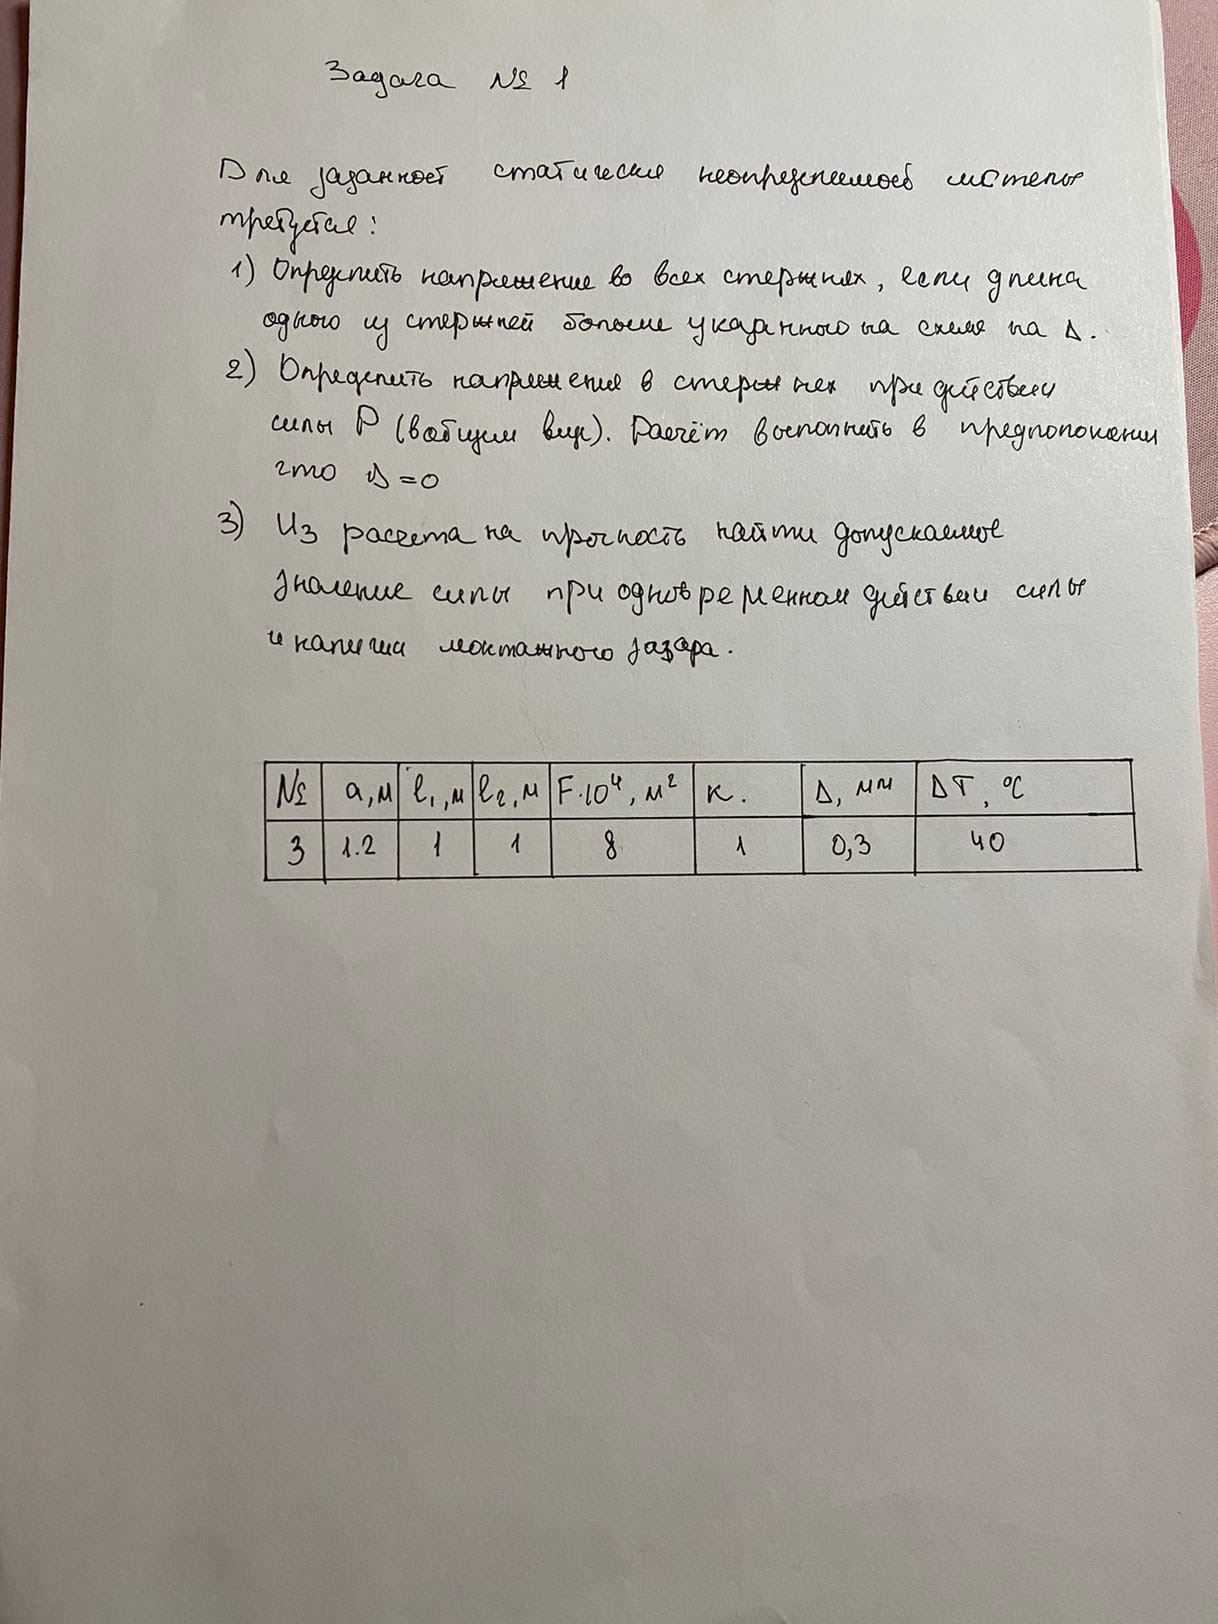 Задача № 1
Для заданной статически неопределимой системы
требуется:
1) Определить напряжение во всех стержнях, если длина
одного из стержней больше указанного на схеме на Δ.
2) Определить напряжения в стержнях при действии
силы P (в общем виде). Расчёт выполнить в предположении
что Δ = 0
3) Из расчета на прочность найти допускаемое
значение силы при одновременном действии силы
и наличии монтажного зазора.
№ a, м l₁, м l₂, м F·10⁴, м² к. Δ, мм ΔT, °C
3 1.2 1 1 8 1 0,3 40